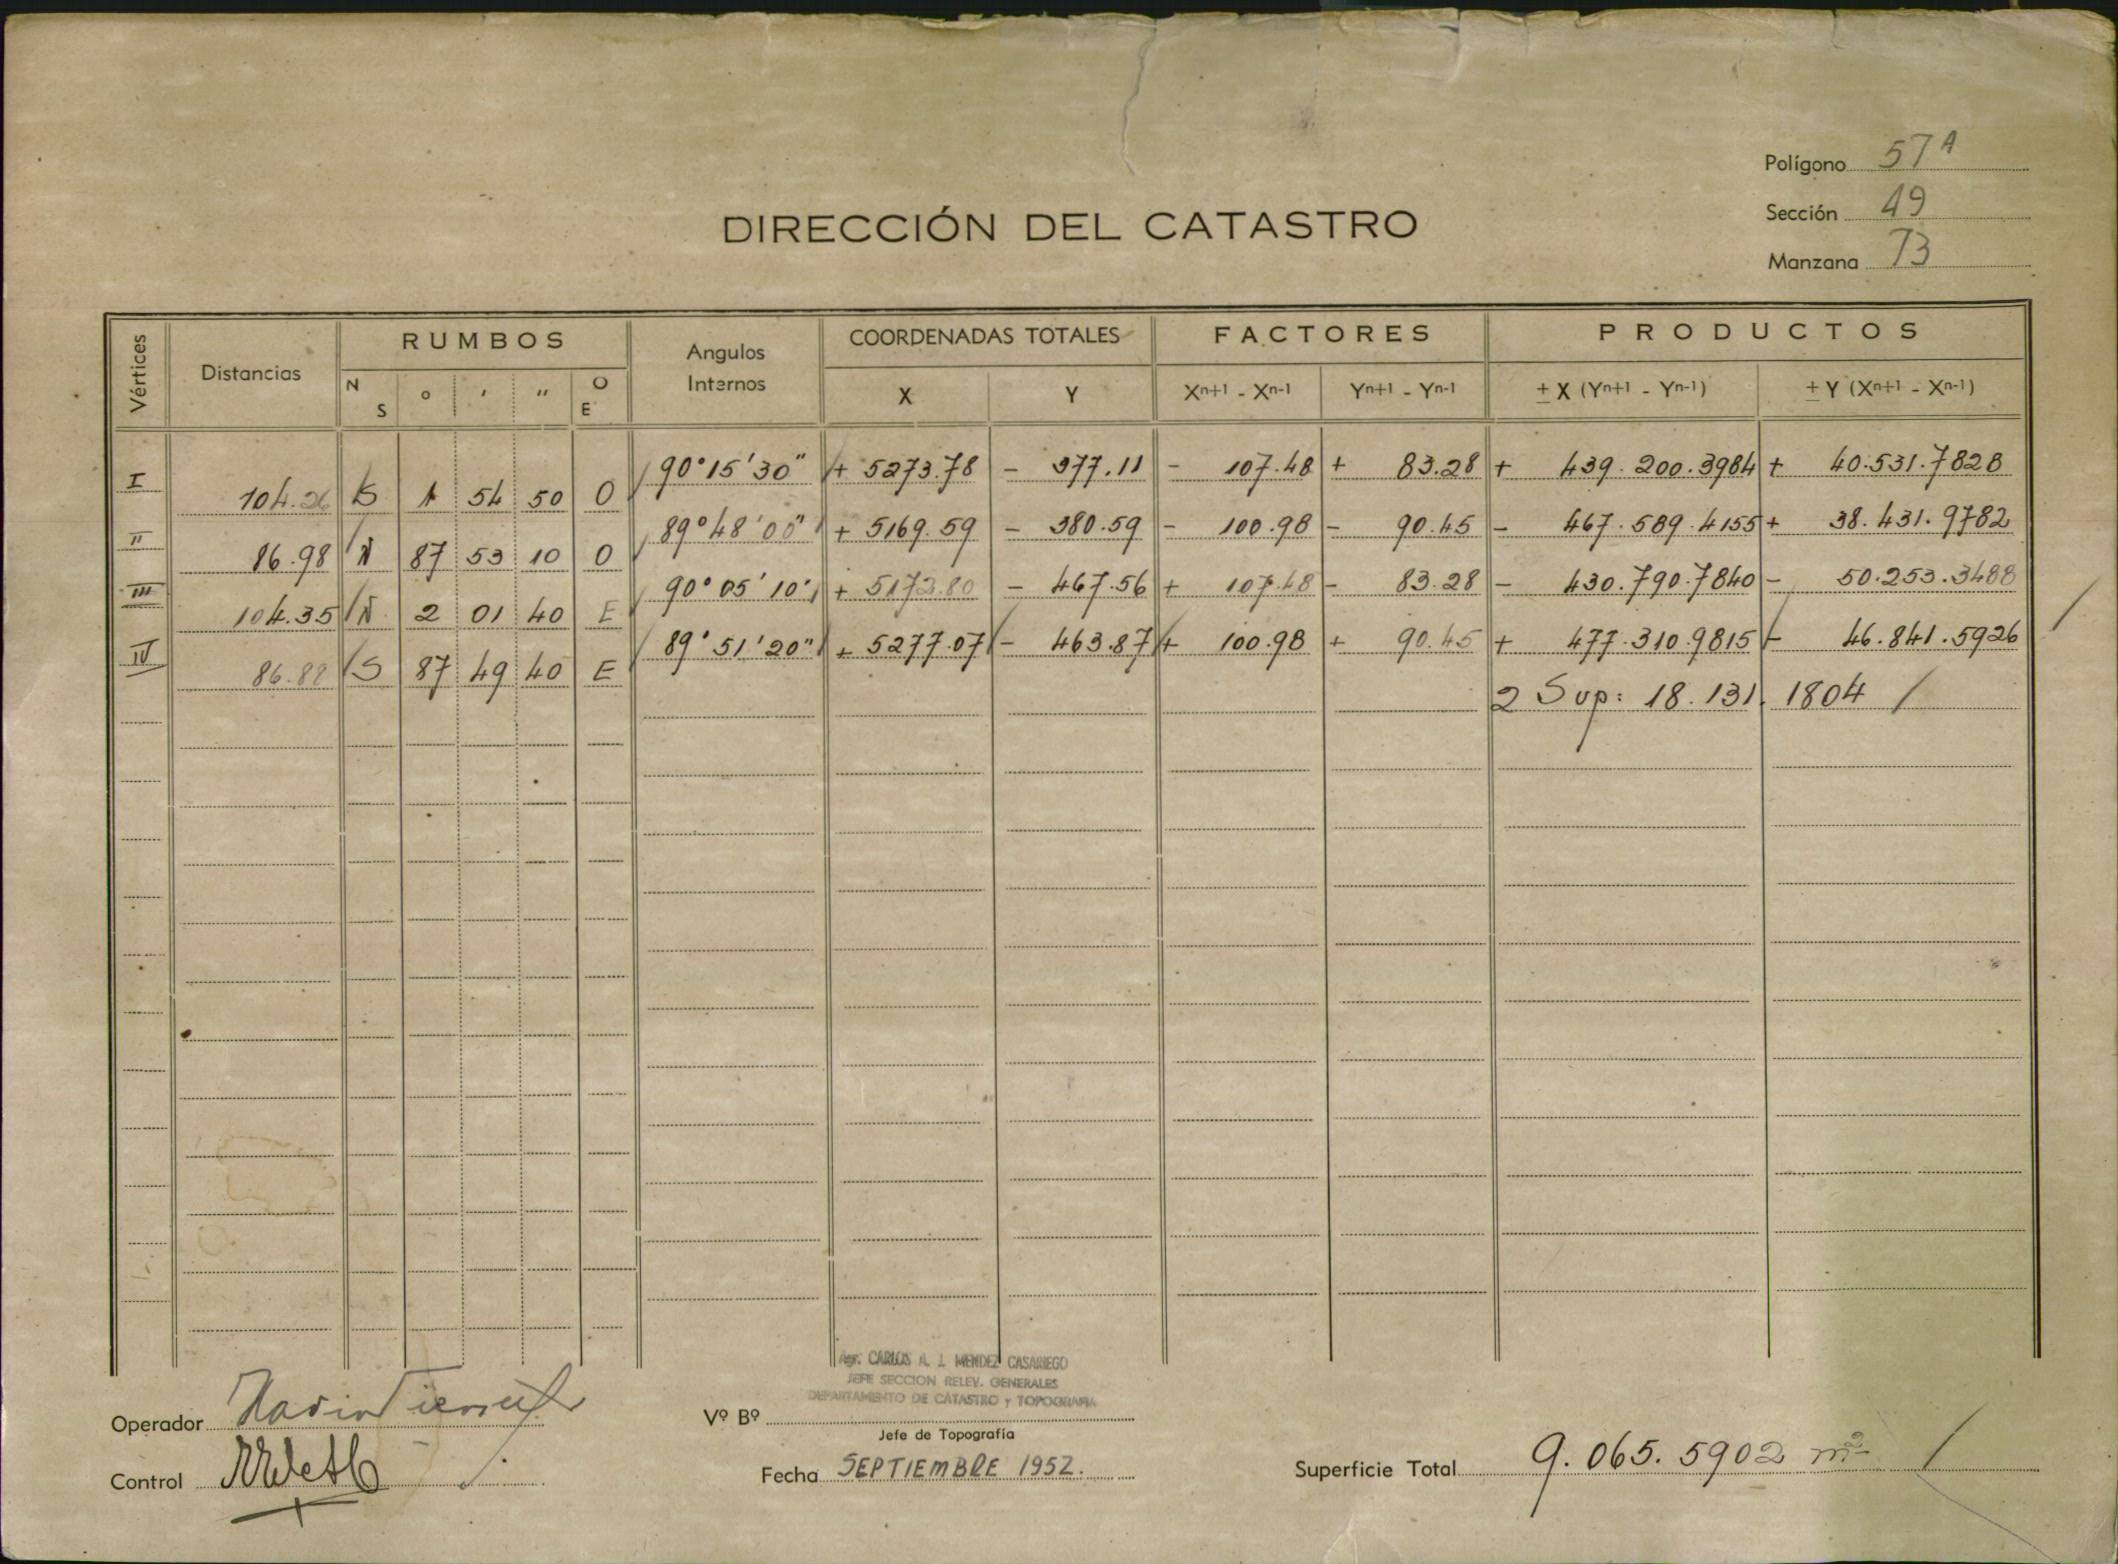 Polígono 57 A
Sección 49
Manzana 73
DIRECCIÓN DEL CATASTRO
Vértices Distancias RUMBOS Angulos Internos COORDENADAS TOTALES FACTORES PRODUCTOS
N S ° ' " O E X Y Xn+1 - Xn-1 Yn+1 - Yn-1 ± X (Yn+1 - Yn-1) ± Y (Xn+1 - Xn-1)
I 104.26 S 1 54 50 O 90°15'30" + 5273.78 - 377.11 - 107.48 + 83.28 + 439.200.3984 + 40.531.7828
II 86.98 N 87 53 10 O 89°48'00" + 5169.59 - 380.59 - 100.98 - 90.45 - 467.589.4155 + 38.431.9782
III 104.35 N 2 01 40 E 90°05'10" + 5172.80 - 467.56 + 107.48 - 83.28 - 430.790.7840 - 50.253.3488
IV 86.82 S 87 49 40 E 89°51'20" + 5277.07 - 463.87 + 100.98 + 90.45 + 477.310.9815 - 46.841.5926
2 Sup: 18.131.1804
Agr. CARLOS A. J. MENDEZ CASARIEGO
JEFE SECCION RELEV. GENERALES
DEPARTAMENTO DE CATASTRO y TOPOGRAFIA
Operador
Vº Bº
Jefe de Topografía
Control
Fecha SEPTIEMBRE 1952.
Superficie Total 9.065.5902 m2